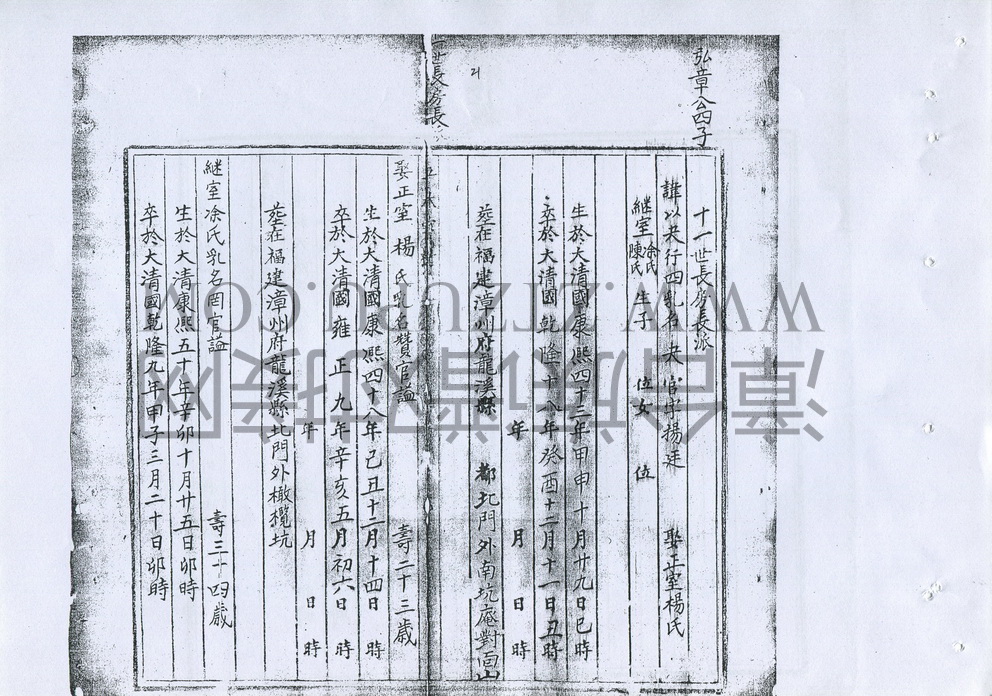 弘章公四子
十一世長房長派
諱以夬行四乳名夬官字揚廷 娶正室楊氏
継室 涂氏 陳氏 生子 位女 位
生於大清國康熙四十三年甲申十月廿九日巳時
卒於大清國乾隆十八年癸酉十二月十一日丑時
年 月 日 時
塟在福建漳州府龍溪縣 都北門外南坑庵對面山
一世長房長
娶正室楊氏乳名贊官謚 壽二十三歲
生於大清國康熙四十八年己丑十二月十四日 時
卒於大清國雍正九年辛亥五月初六日 時
年 月 日 時
塟在福建漳州府龍溪縣北門外橄欖坑
継室涂氏乳名罔官謚 壽三十四歲
生於大清康熙五十年辛卯十月廿五日卯時
卒於大清國乾隆九年甲子三月二十日卯時
21
www.zrzupu.com